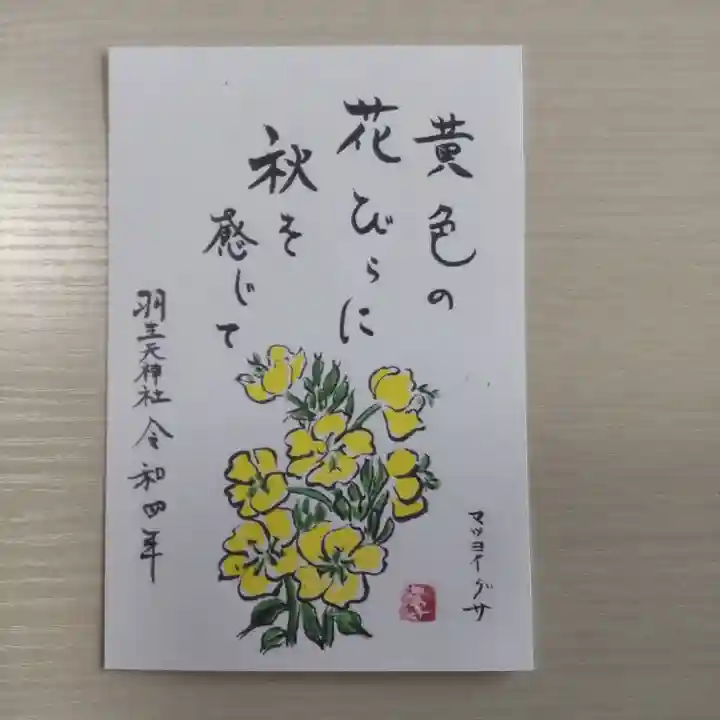 黄色の
花びらに
秋を
感じて
羽生天神社 令和四年
マツヨイグサ